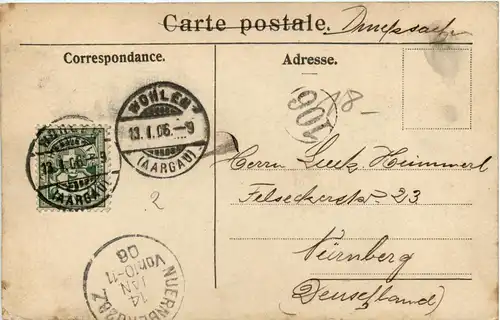 Carte postale. Drucksache
Correspondance.
Adresse.
WOHLEN
13. I. 06.–9
(AARGAU)
WOHLEN
13. I. 06.–9
(AARGAU)
106
18–
Herrn Hemmerl
Felseckerstr 23
Nürnberg
(Deutschland)
2
NUERNBERG
14 JAN
Vor. 10-11
06